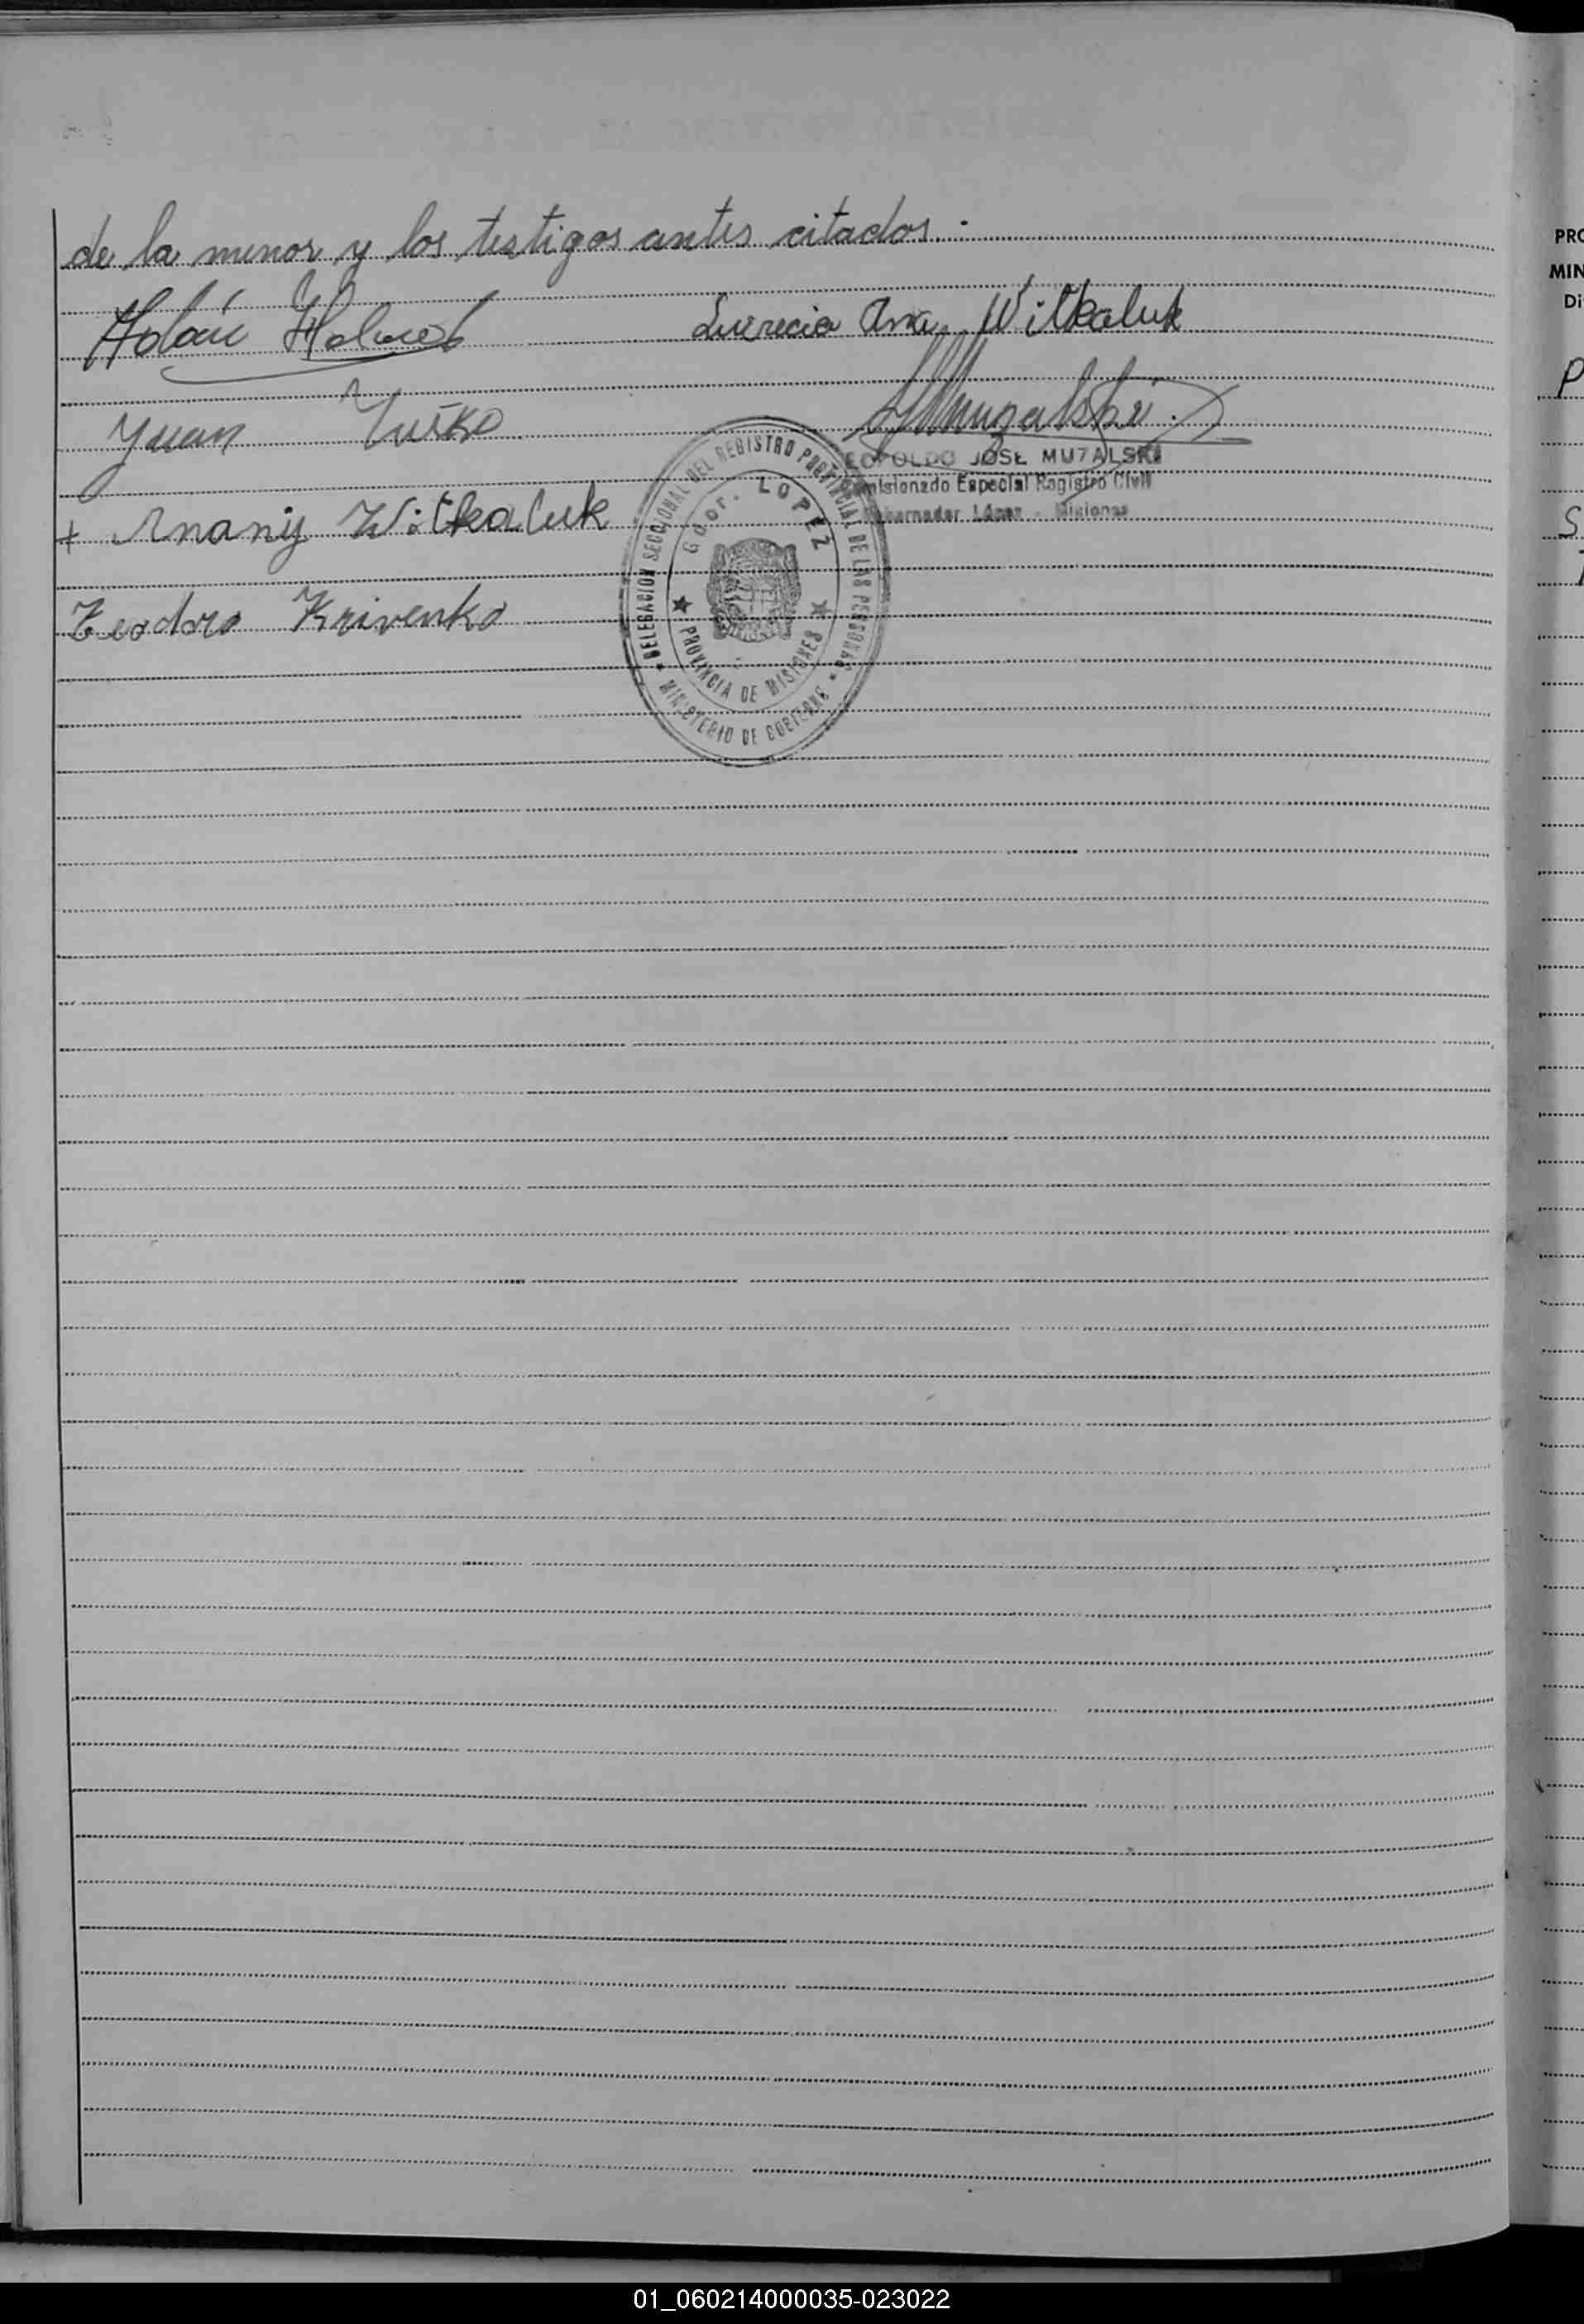 de la menor y los testigos antes citados.-
Lucrecia Ana Witkaluk
Juan
LEOPOLDO JOSE MUZALSKI
Comisionado Especial Registro Civil
Gobernador López - Misiones
+ Anany Witkaluk
Teodoro Krivenko
DELEGACION SECCIONAL DEL REGISTRO PROVINCIAL DE LAS PERSONAS
Gdor. LOPEZ
PROVINCIA DE MISIONES
MINISTERIO DE GOBIERNO
PRO
MIN
Di
P
S
01_060214000035-023022